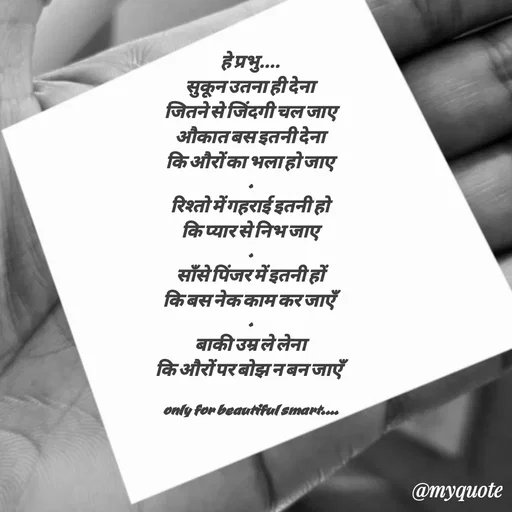 हे प्रभु....
सुकून उतना ही देना
जितने से जिंदगी चल जाए
औकात बस इतनी देना
कि औरों का भला हो जाए
.
रिश्तो में गहराई इतनी हो
कि प्यार से निभ जाए
.
साँसे पिंजर में इतनी हों
कि बस नेक काम कर जाएँ
.
बाकी उम्र ले लेना
कि औरों पर बोझ न बन जाएँ
only for beautiful smart....
@myquote